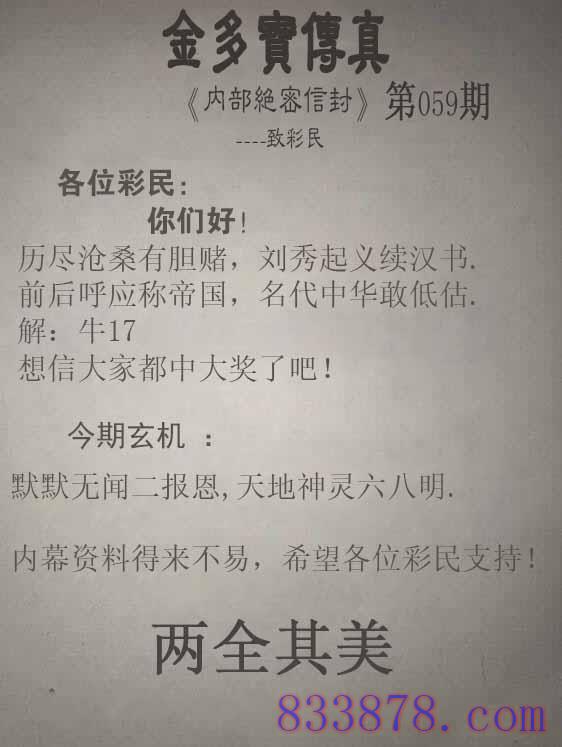 金多寳傳真
《内部絶密信封》第059期
----致彩民
各位彩民:
你们好!
历尽沧桑有胆赌，刘秀起义续汉书.
前后呼应称帝国，名代中华敢低估.
解：牛17
想信大家都中大奖了吧!
今期玄机 :
默默无闻二报恩,天地神灵六八明.
内幕资料得来不易，希望各位彩民支持!
两全其美
833878.com